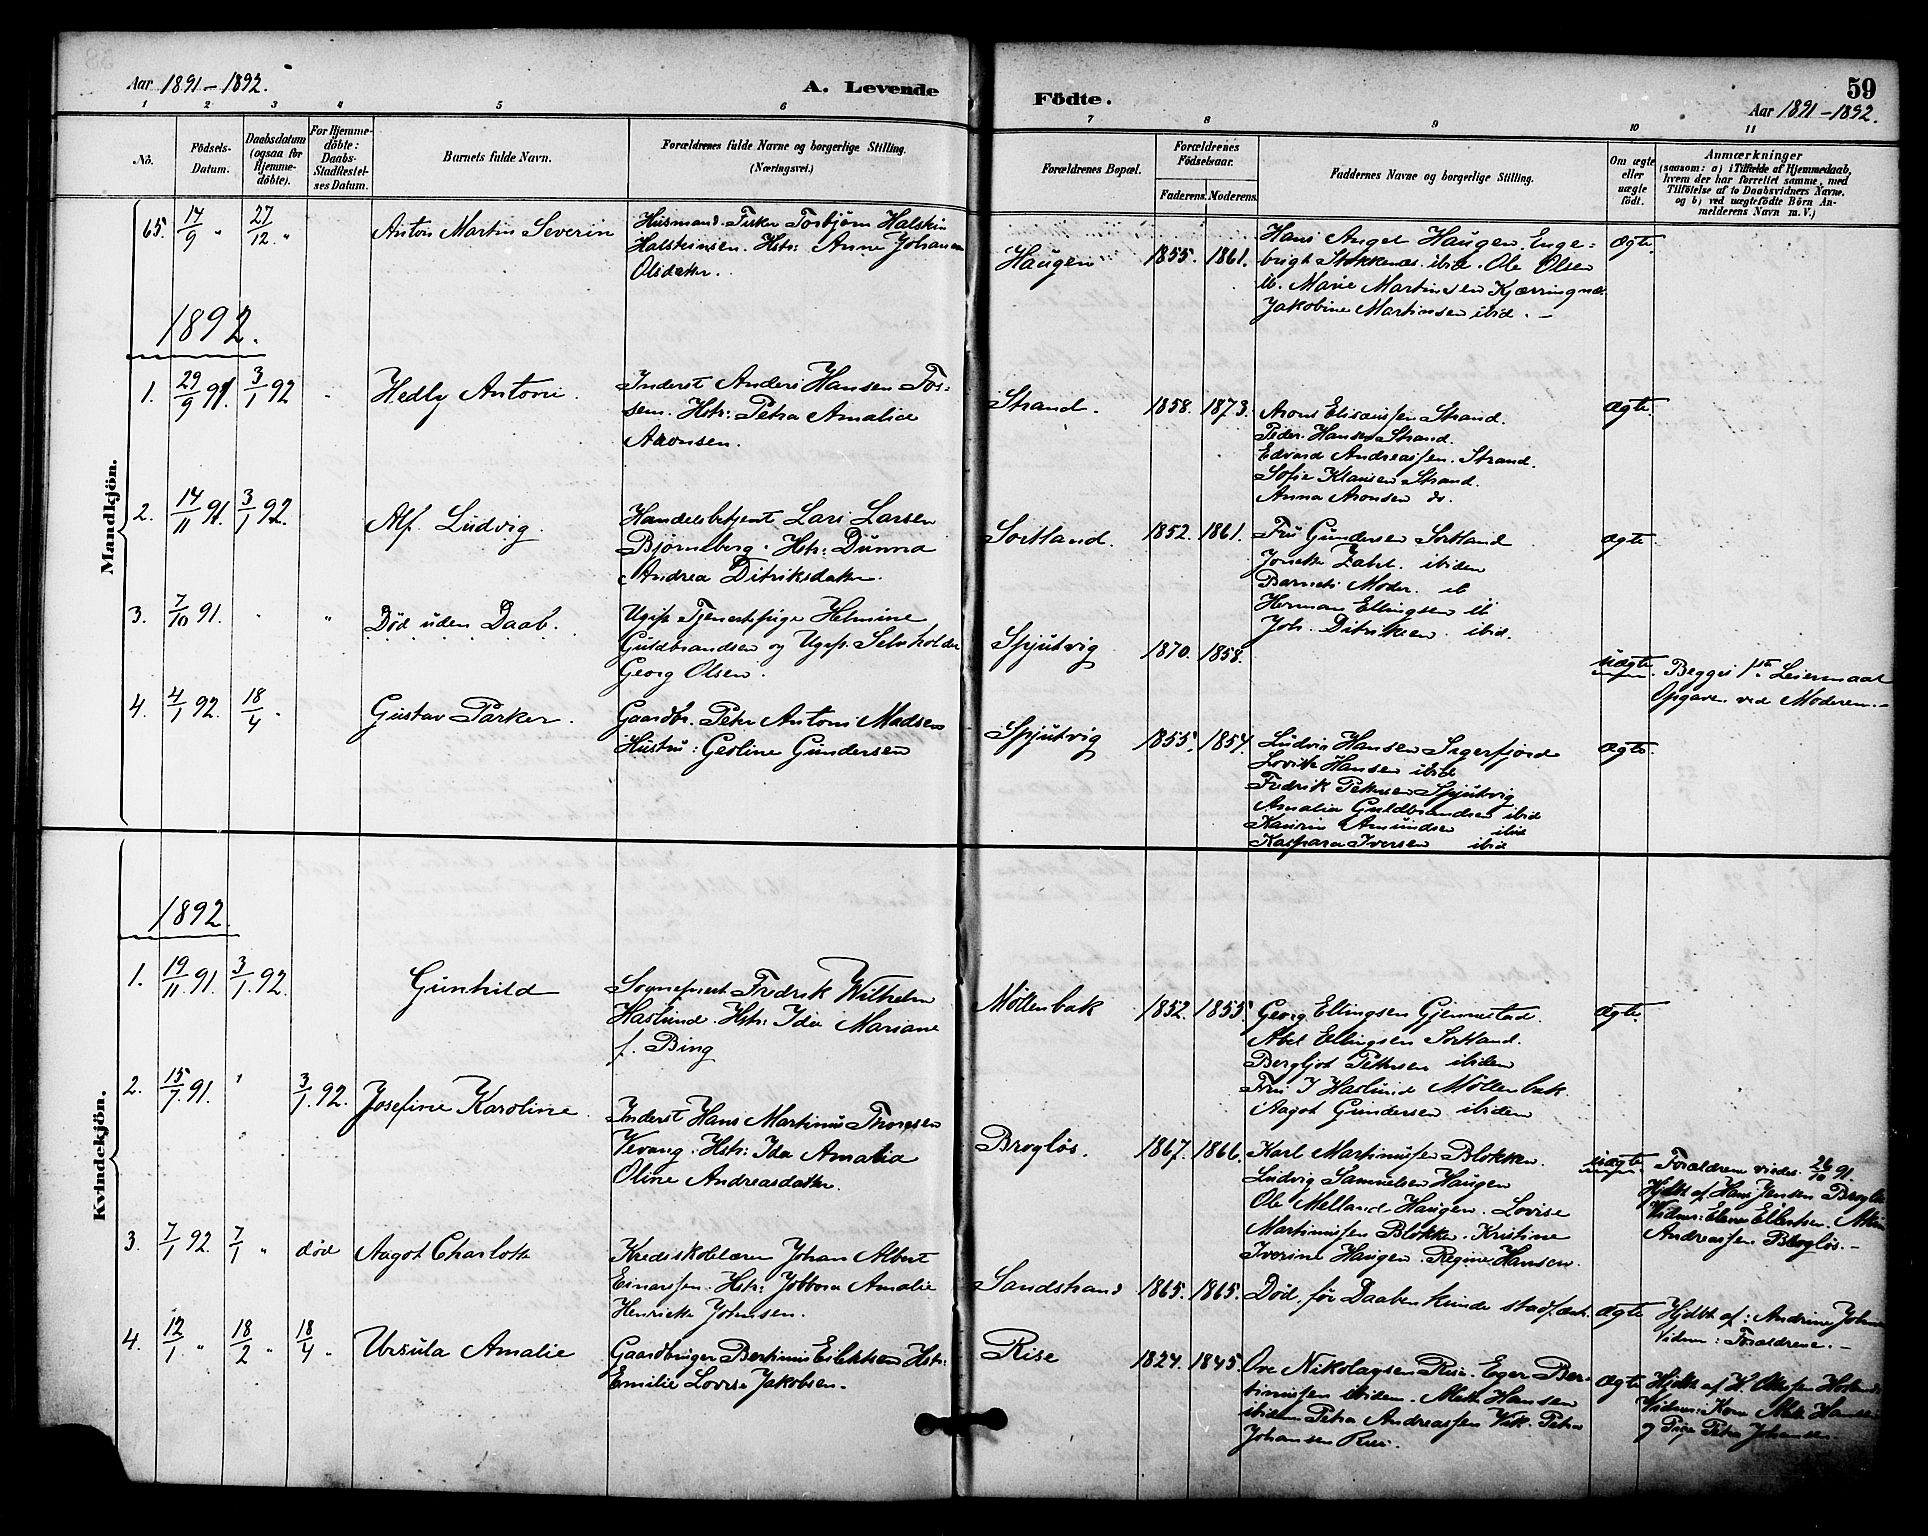 Aar 1891-1892.
A. Levende
Födte.
59
Aar 1891-1892.
1 2 3 4 5 6 7 8 9 10 11
No.
Födsels-
Datum.
Daabsdatum
(ogsaa for
Hjemme-
döbte).
For Hjemme-
döbte:
Daabs-
Stadfæstel-
ses Datum.
Barnets fulde Navn.
Forældrenes fulde Navne og borgerlige Stilling.
(Næringsvei.)
Forældrenes Bopæl.
Forældrenes
Födselsaar.
Faderens. Moderens.
Faddernes Navne og borgerlige Stilling.
Om ægte
eller
uægte
født.
Anmærkninger
(saasom: a) i Tilfælde af Hjemmedaab,
hvem der har forrettet samme, med
Tilföielse af to Daabsvidners Navne,
og b) ved uægtefödte Börn An-
melderens Navn m. V.)
Mandkjön.
65. 14/9 " 27/12 " Anton Martin Severin
Husmand. Fisker Torbjørn Halstein
Halsteinsen. Hstr: Anne Johanna
Olsdatter.
Haugen 1855. 1861.
Hans Angel Haugen, Enge-
brigt Stokkenæs ibid. Ole Olsen
ib. Marie Martinsen Kjærringnæs.
Jakobine Martinsen ibid. —
Ægte.
1892.
1. 29/9 91. 3/1 92 Hedly Antoni.
Inderst Anders Hansen Fos-
sem. Hstr: Petra Amalia
Aronsen.
Strand. 1858. 1873.
Arons Elisæussen Strand.
Peder Hansen Strand.
Edvard Andreassen. Strand.
Sofie Klausen Strand.
Anna Aronsen do.
ægte.
2. 14/11 91. 3/1 92. Alf Ludvig.
Handelsbetjent Lars Larsen
Bjørnsberg. Hstr: Dunna
Andrea Ditriksdatter.
Sortland. 1852. 1861.
Fru Gundersen Sortland
Jonette Zahl. ibiden
Barnets Moder. ib
Herman Ellingsen ib
Joh. Ditriksen. ibid.
ægte.
3. 7/10 91. " Død uden Daab.
Ugift Tjenestepige Helmine
Guldbrandsen og Ugift. Selvholder
Georg Olsen.
Spjutvig 1870. 1858.
uægte. Begges 1ste Leiermaal
Opgave ved Moderen. —
4. 4/1 92. 18/4 " Gustav Parker.
Gaardbr. Peter Antoni Madsen
Hustru: Gesline Gundersen
Spjutvig 1855. 1854.
Ludvig Hansen Sigerfjord
Lovise Hansen ibid
Fredrik Pettersen Spjutvig
Amalia Guldbrandsen ibid
Amundsen ibid
Kaspara Iversen ibid
ægte.
Kvindekjön.
1892.
1. 19/11 91. 3/1 92. Gunhild
Sogneprest Fredrik Wilhelm
Haslund. Hstr: Ida Mariane
f. Bing
Möllenbak 1852. 1855.
Georg Ellingsen Gjennestad.
Abel Ellingsen Sortland.
Bergljot Pettersen ibiden
Fru I Haslund Möllenbak.
Aagot Gundersen ibiden
ægte.
2. 15/7 91. " 3/1 92. Josefine Karoline.
Inderst Hans Martinus Thoresen
Vevang. Hstr: Ida Amalia
Oline Andreasdatter.
Brogløs. 1867. 1866.
Karl Martinussen Blokken.
Ludvig Samuelsen Haugen
Ole Melland Haugen. Lovise
Martinussen Blokken. Kristine
Iverine Haugen. Regine Hansen.
uægte. Forældrene viedes 26/10 91.
Hjdbt af Hans Jensen Brogløs
Vidner: Elene Ellertsen.
Andreassen Brogløs. —
3. 7/1 92. 7/1 " død Aagot Charlotte
Kredsskolelærer Johan Albert
Einarssen. Hstr: Jobbora Amalie
Henriette Johnsen.
Sandstrand 1865. 1865.
Død, før Daaben kunde stadfæstes.
ægte Hjdbt af: Andrine Johns
Vidner: Forældrene. —
4. 12/1 " 18/2 " 18/4 " Ursula Amalie
Gaardbruger Bertinus Eilertsen Hstr:
Emilie Lovise Jakobsen.
Rise 1824. 1845.
Ove Nikolaysen Rise. Eger Ber-
tinussen ibiden. Mette Hansen
ibiden Petra Andreassen Vik. Petra
Johansen Rise.
ægte Hjdbt af H.
Vidner: Kone Mette Hansen
og Pige Petra Johansen